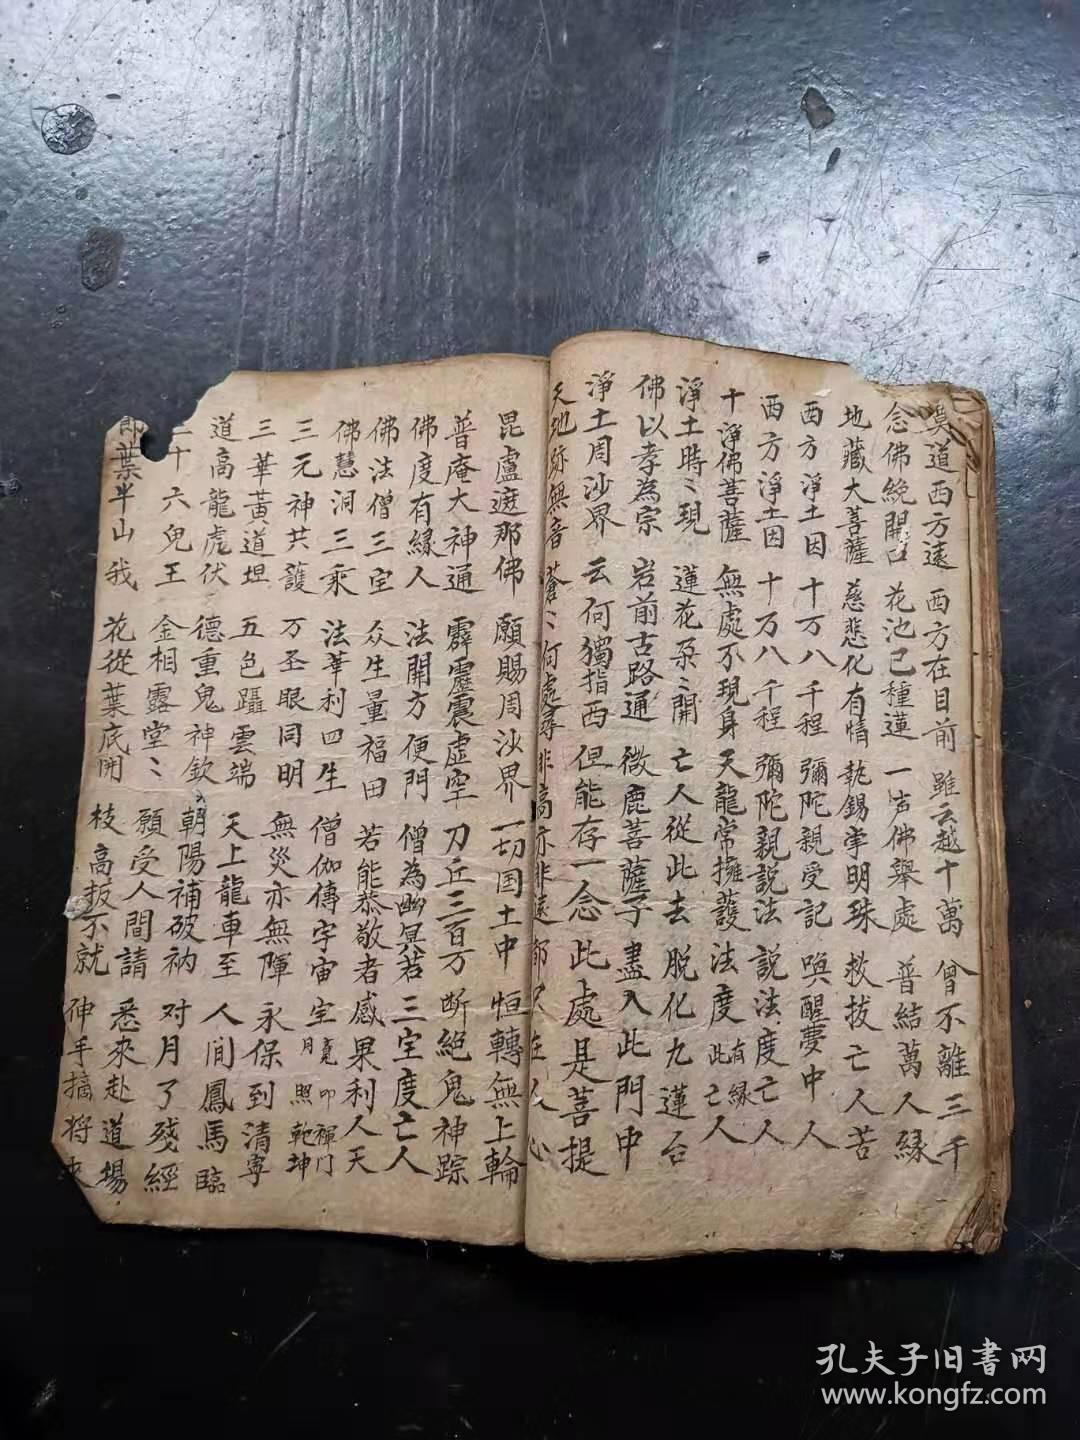 莫道西方遠 西方在目前 雖云越十萬 曾不離三千
念佛絕開口 花池已種蓮 一声佛舉處 普結萬人緣
地藏大菩薩 慈悲化有情 執錫掌明珠 救拔亡人苦
西方淨土因 十万八千程 彌陀親受記 喚醒夢中人
西方淨土因 十万八千程 彌陀親説法 説法度亡人
十淨佛菩薩 無處不現身 天龍常擁護 法度有緣此亡人
淨土時〻現 蓮花朶〻開 亡人從此去 脱化九蓮台
佛以孝為宗 岩前古路通 微鹿菩薩子 盡入此門中
淨土周沙界 云何獨指西 但能存一念 此處是菩提
天地弥無音 蒼〻何處尋 非高亦非遠 都只在人心
毘盧遮那佛 願賜周沙界 一切国土中 恒轉無上輪
普庵大神通 霹靂震虚空 刀丘三百万 断絕鬼神踪
佛度有緣人 法開方便門 僧為幽冥若 三宝度亡人
佛法僧三宝 众生量福田 若能恭敬者 感果利人天
佛慧洞三乘 法華利四生 僧伽傳字宙 宝月 照乾坤 印禪门
三元神共護 万丕眼同明 無災亦無障 永保到清寧
三華黃道坦 五色躡雲端 天上龍車至 人间鳳馬臨
道高龍虎伏 德重鬼神欽 朝陽補破衲 对月了殘經
十六兒王 金相露堂〻 願受人間請 悉來赴道場
即葉半山我 花從葉底開 枝高扳不就 伸手摘将來
孔夫子旧書网
www.kongfz.com